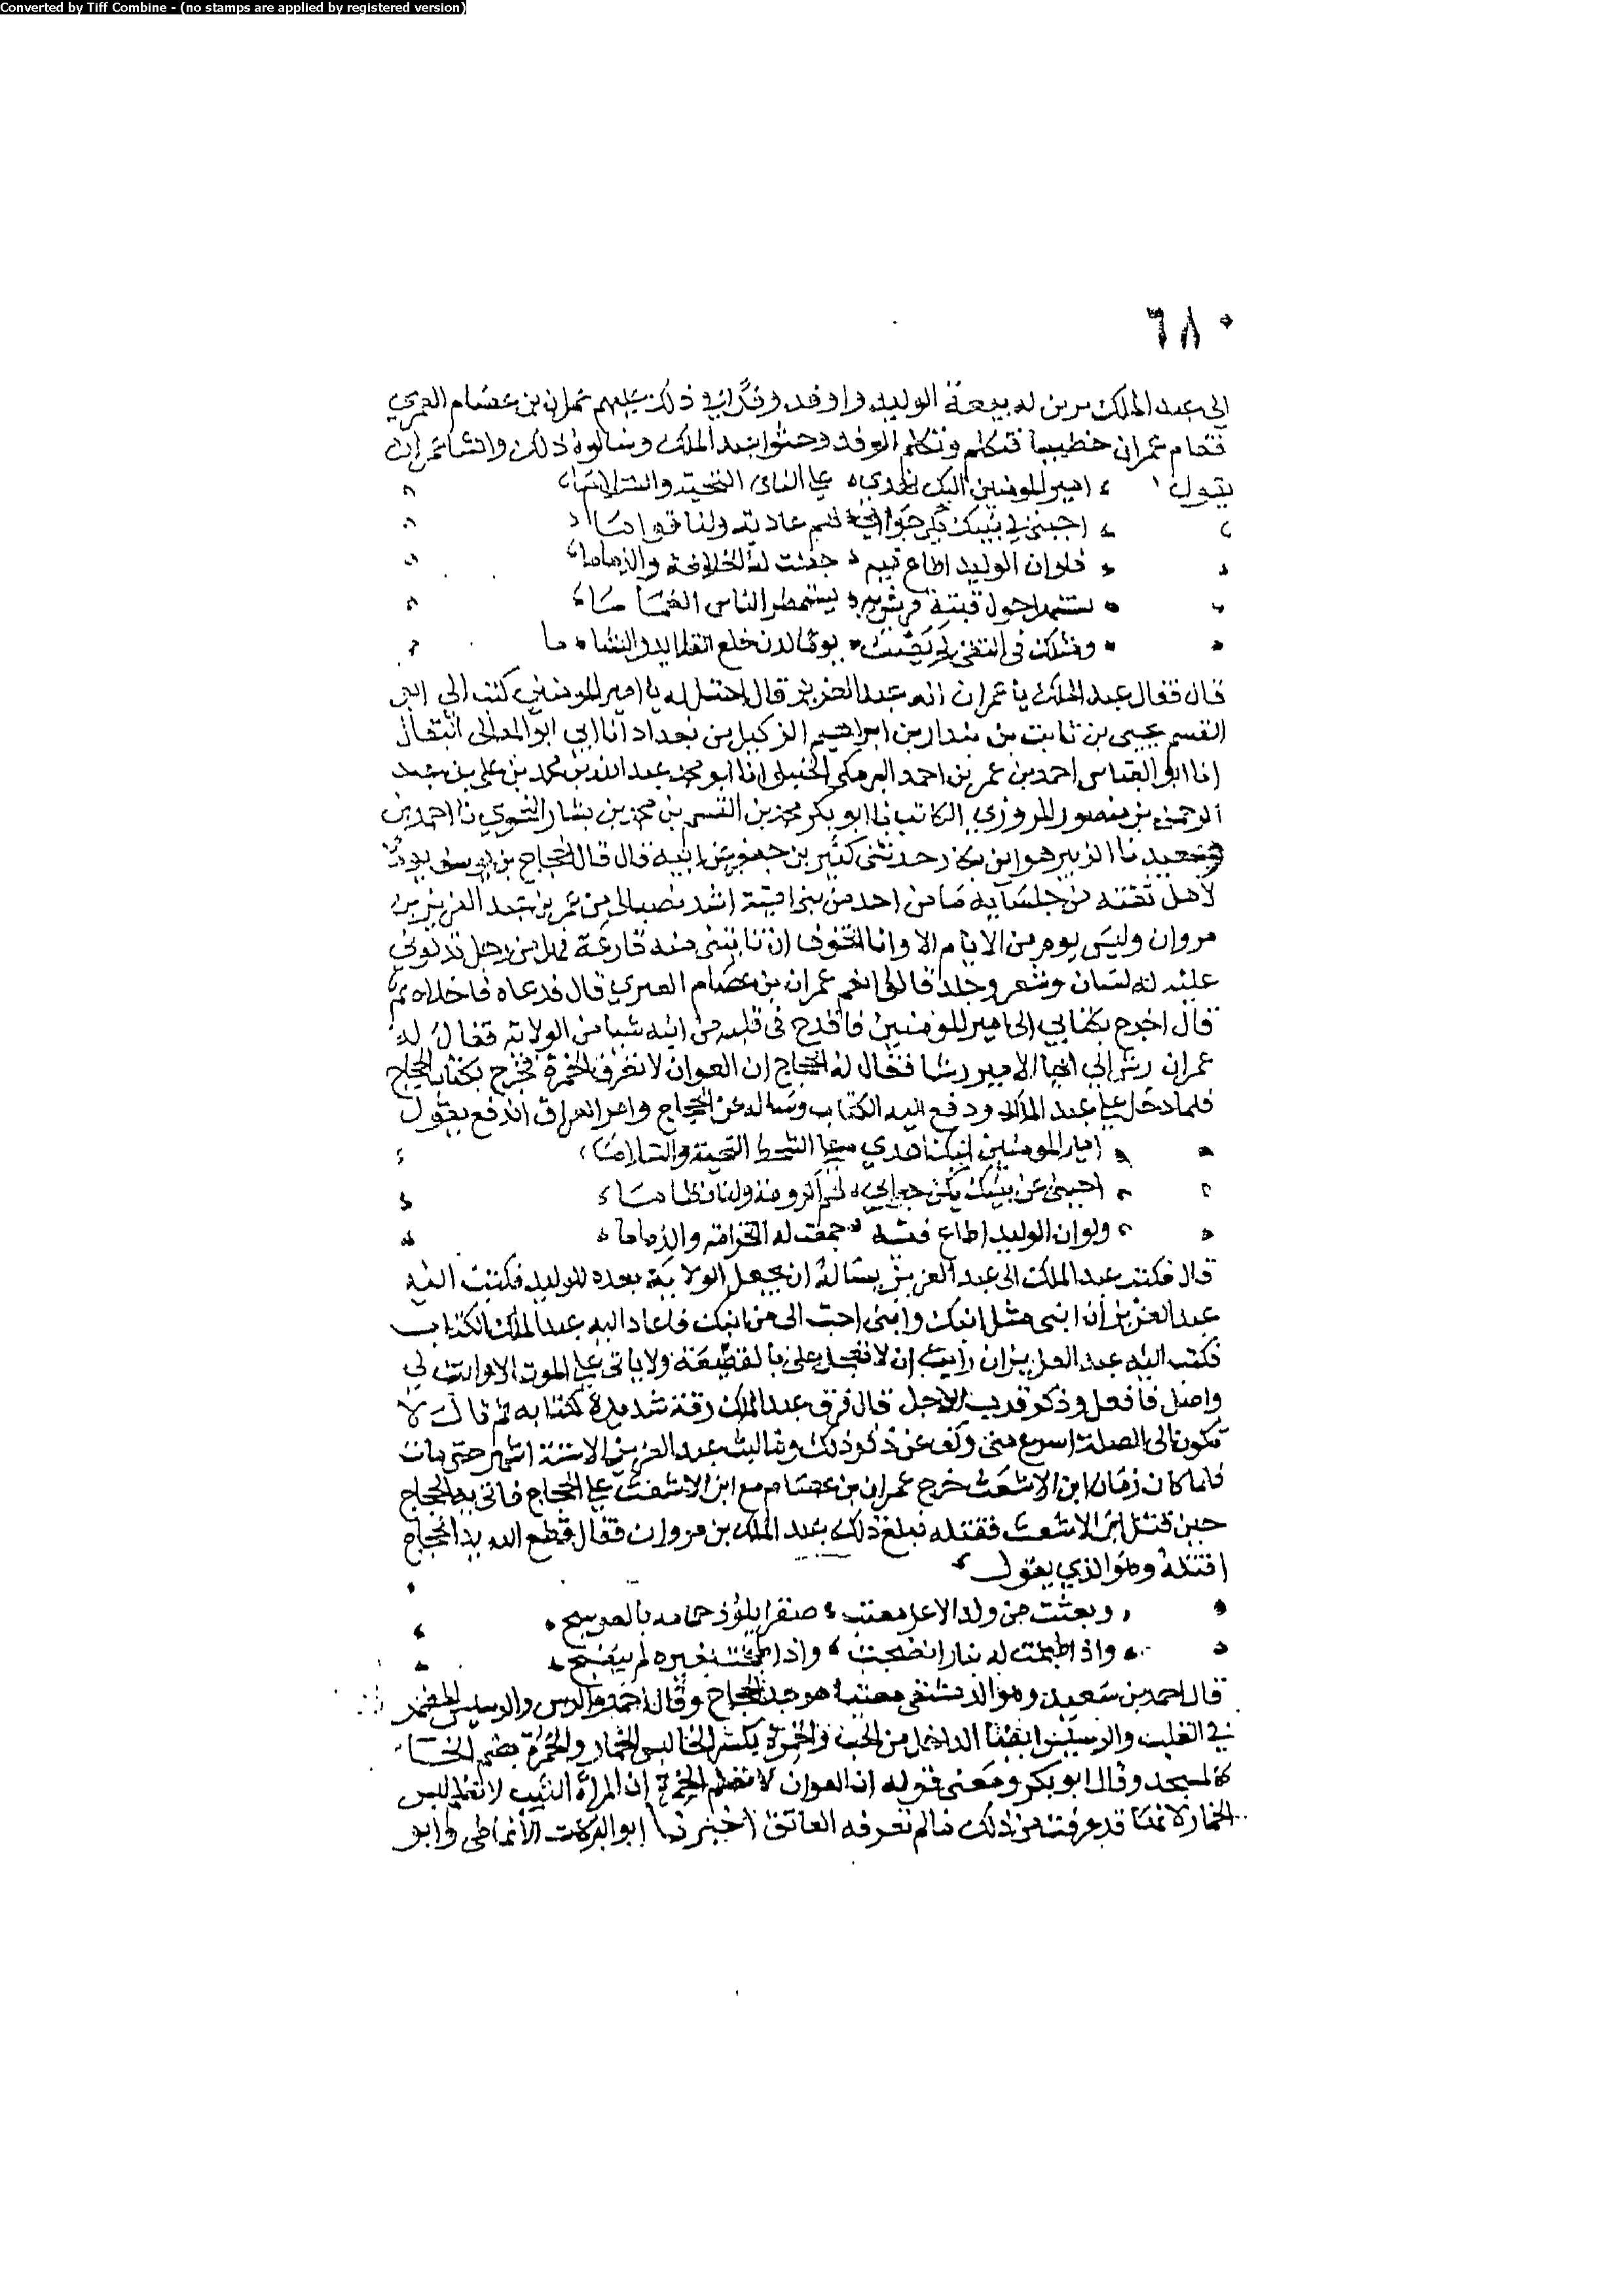 Converted by Tiff Combine - (no stamps are applied by registered version)
٦٨٠
الى عبد الملك يزين له بيعة الوليد واوفد وفدا في ذلك عليهم عمران بن عصام العمري
فقام عمران خطيبا فتكلم وتكلم الوفد وحثوا عبد الملك وسالوه ذلك وانشا عمران
يقول امير المومنين اليك نهدي على الناى التحية والسلاما
اجبني في بنيك يكن جوابي لهم عادية ولنا قواما
فلو ان الوليد اطاع فيه جعلت له الخلافة والذماما
شبيهك حول قبته قريش به يستمطر الناس الغماما
ومثلك في التقى لم يصب يوما لدن خلع القلايد والتماما
قال فقال عبد الملك يا عمران انه عبد العزيز قال احتل له يا امير المومنين كتب الى ابو
القسم يحيى بن ثابت بن بندار بن ابراهيم الوكيل من بغداد انا ابي ابو المعالي البقال
انا ابو العباس احمد بن عمر بن احمد البرمكي الحنبلي انا ابو محمد عبد الله بن محمد بن علي بن عبد
الرحمن بن منصور المروزي الكاتب نا ابو بكر محمد بن القسم بن محمد بن بشار النحوي نا احمد بن
سعيد نا الزبير هو ابن بكار حدثني كثير بن جعفر عن ابيه قال قال الحجاج بن يوسف يوما
لاهل ثقته من جلسايه ما من احد من بني امية اشد نصبا لي من عمر بن عبد العزيز بن
مروان وليس يوم من الايام الا وانا اتخوف ان تاتيني منه قارعة فهل من رجل تدلوني
عليه له لسان وشعر وجلد قالوا نعم عمران بن عصام العمري قال فدعاه فاخلاه ثم
قال اخرج بكتابي الى امير المومنين فاقدح في قلبه من ابنه شيا من الولاية فقال له
عمران رس الي ايها الامير رسا فقال له الحجاج ان العوان لا تعرف الخمرة فخرج بكتاب الحجاج
فلما دخل على عبد الملك ودفع اليه الكتاب وساله عن الحجاج وامر العراق اندفع يقول
امير المومنين اليك اهدي على الشحط التحية والسلاما
اجبني عن بنيك يكن جوابي لهم اكرومة ولنا نظاما
ولو ان الوليد اطاع فيه جمعت له الخزامة والذماما
قال فكتب عبد الملك الى عبد العزيز يساله ان يجعل الولاية بعده للوليد فكتب اليه
عبد العزيز ان ابني مثل ابنك وابني احب الى من ابنك فاعاد اليه عبد الملك الكتاب
فكتب اليه عبد العزيز ان رايت ان لا تعجل على بالقطيعة ولا ياتي على الموت الا وانت لي
واصل فافعل وذكر قرب الاجل قال فرق عبد الملك رقة شديدة لكتابه ثم قال لا
تكون الى الصلة اسرع مني وكف عن ذكر ذلك وما لبث عبد العزيز الا ستة اشهر حتى مات
فلما كان زمان ابن الاشعث خرج عمران بن عصام مع ابن الاشعث على الحجاج فاتي به الحجاج
حين قتل ابن الاشعث فقتله فبلغ ذلك عبد الملك بن مروان فقال قطع الله يد الحجاج
اقتله وهو الذي يقول
وبعثت من ولد الاغر معتب صقرا يلوذ حمامه بالعوسج
واذا طبخت له بنار انضجت واذا طبخت بغيره لم ينضج
قال احمد بن سعيد وهو الدمشقي معتب هو جد الحجاج وقال احمد الرس والرسيس المضمر
في القلب والرسيس ايضا الداخل من الحب والخمرة بكسر الخا لبس الخمار والخمرة بضم الخا
كالمسجد وقال ابو بكر ومعنى قوله ان العوان لا تعلم الخمرة ان المراة الثيب لا تعلم لبس
الخمار لانها قد عرفت من ذلك ما لم تعرفه العاتق اخبرنا ابو البركات الانماطي وابو